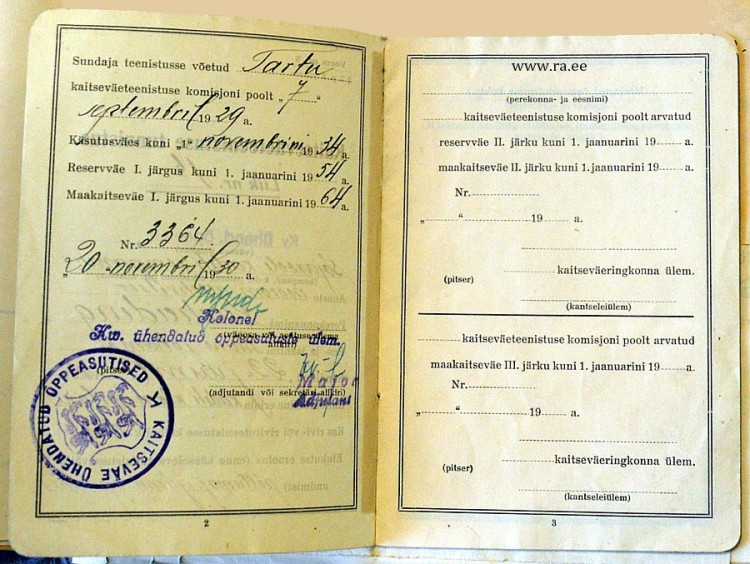 Sundaja teenistusse võetud Tartu
kaitseväeteenistuse komisjoni poolt „7"
septembril 1929 a.
Käsutusväes kuni „1" novembrini 1934 a.
Reservväe I. järgus kuni 1. jaanuarini 1954 a.
Maakaitseväe I. järgus kuni 1. jaanuarini 1964 a.
Nr. 3364.
„20 novembril 1930 a.
Kolonel
Kw. ühendatud õppeasutuste ülem.
allkiri)
(pitser)
Major
(adjutandi või sekretäri allkiri)
Adjutant
KAITSEVÄE ÜHENDATUD ÕPPEASUTISED
2
www.ra.ee
(perekonna- ja eesnimi)
kaitseväeteenistuse komisjoni poolt arvatud
reservväe II. järku kuni 1. jaanuarini 19 a.
maakaitseväe II. järku kuni 1. jaanuarini 19 a.
Nr.
„ “ 19 a.
kaitseväeringkonna ülem.
(pitser)
(kantseleiülem)
kaitseväeteenistuse komisjoni poolt arvatud
maakaitseväe III. järku kuni 1. jaanuarini 19 a.
Nr.
„ “ 19 a.
(pitser) kaitseväeringkonna ülem.
(kantseleiülem)
3